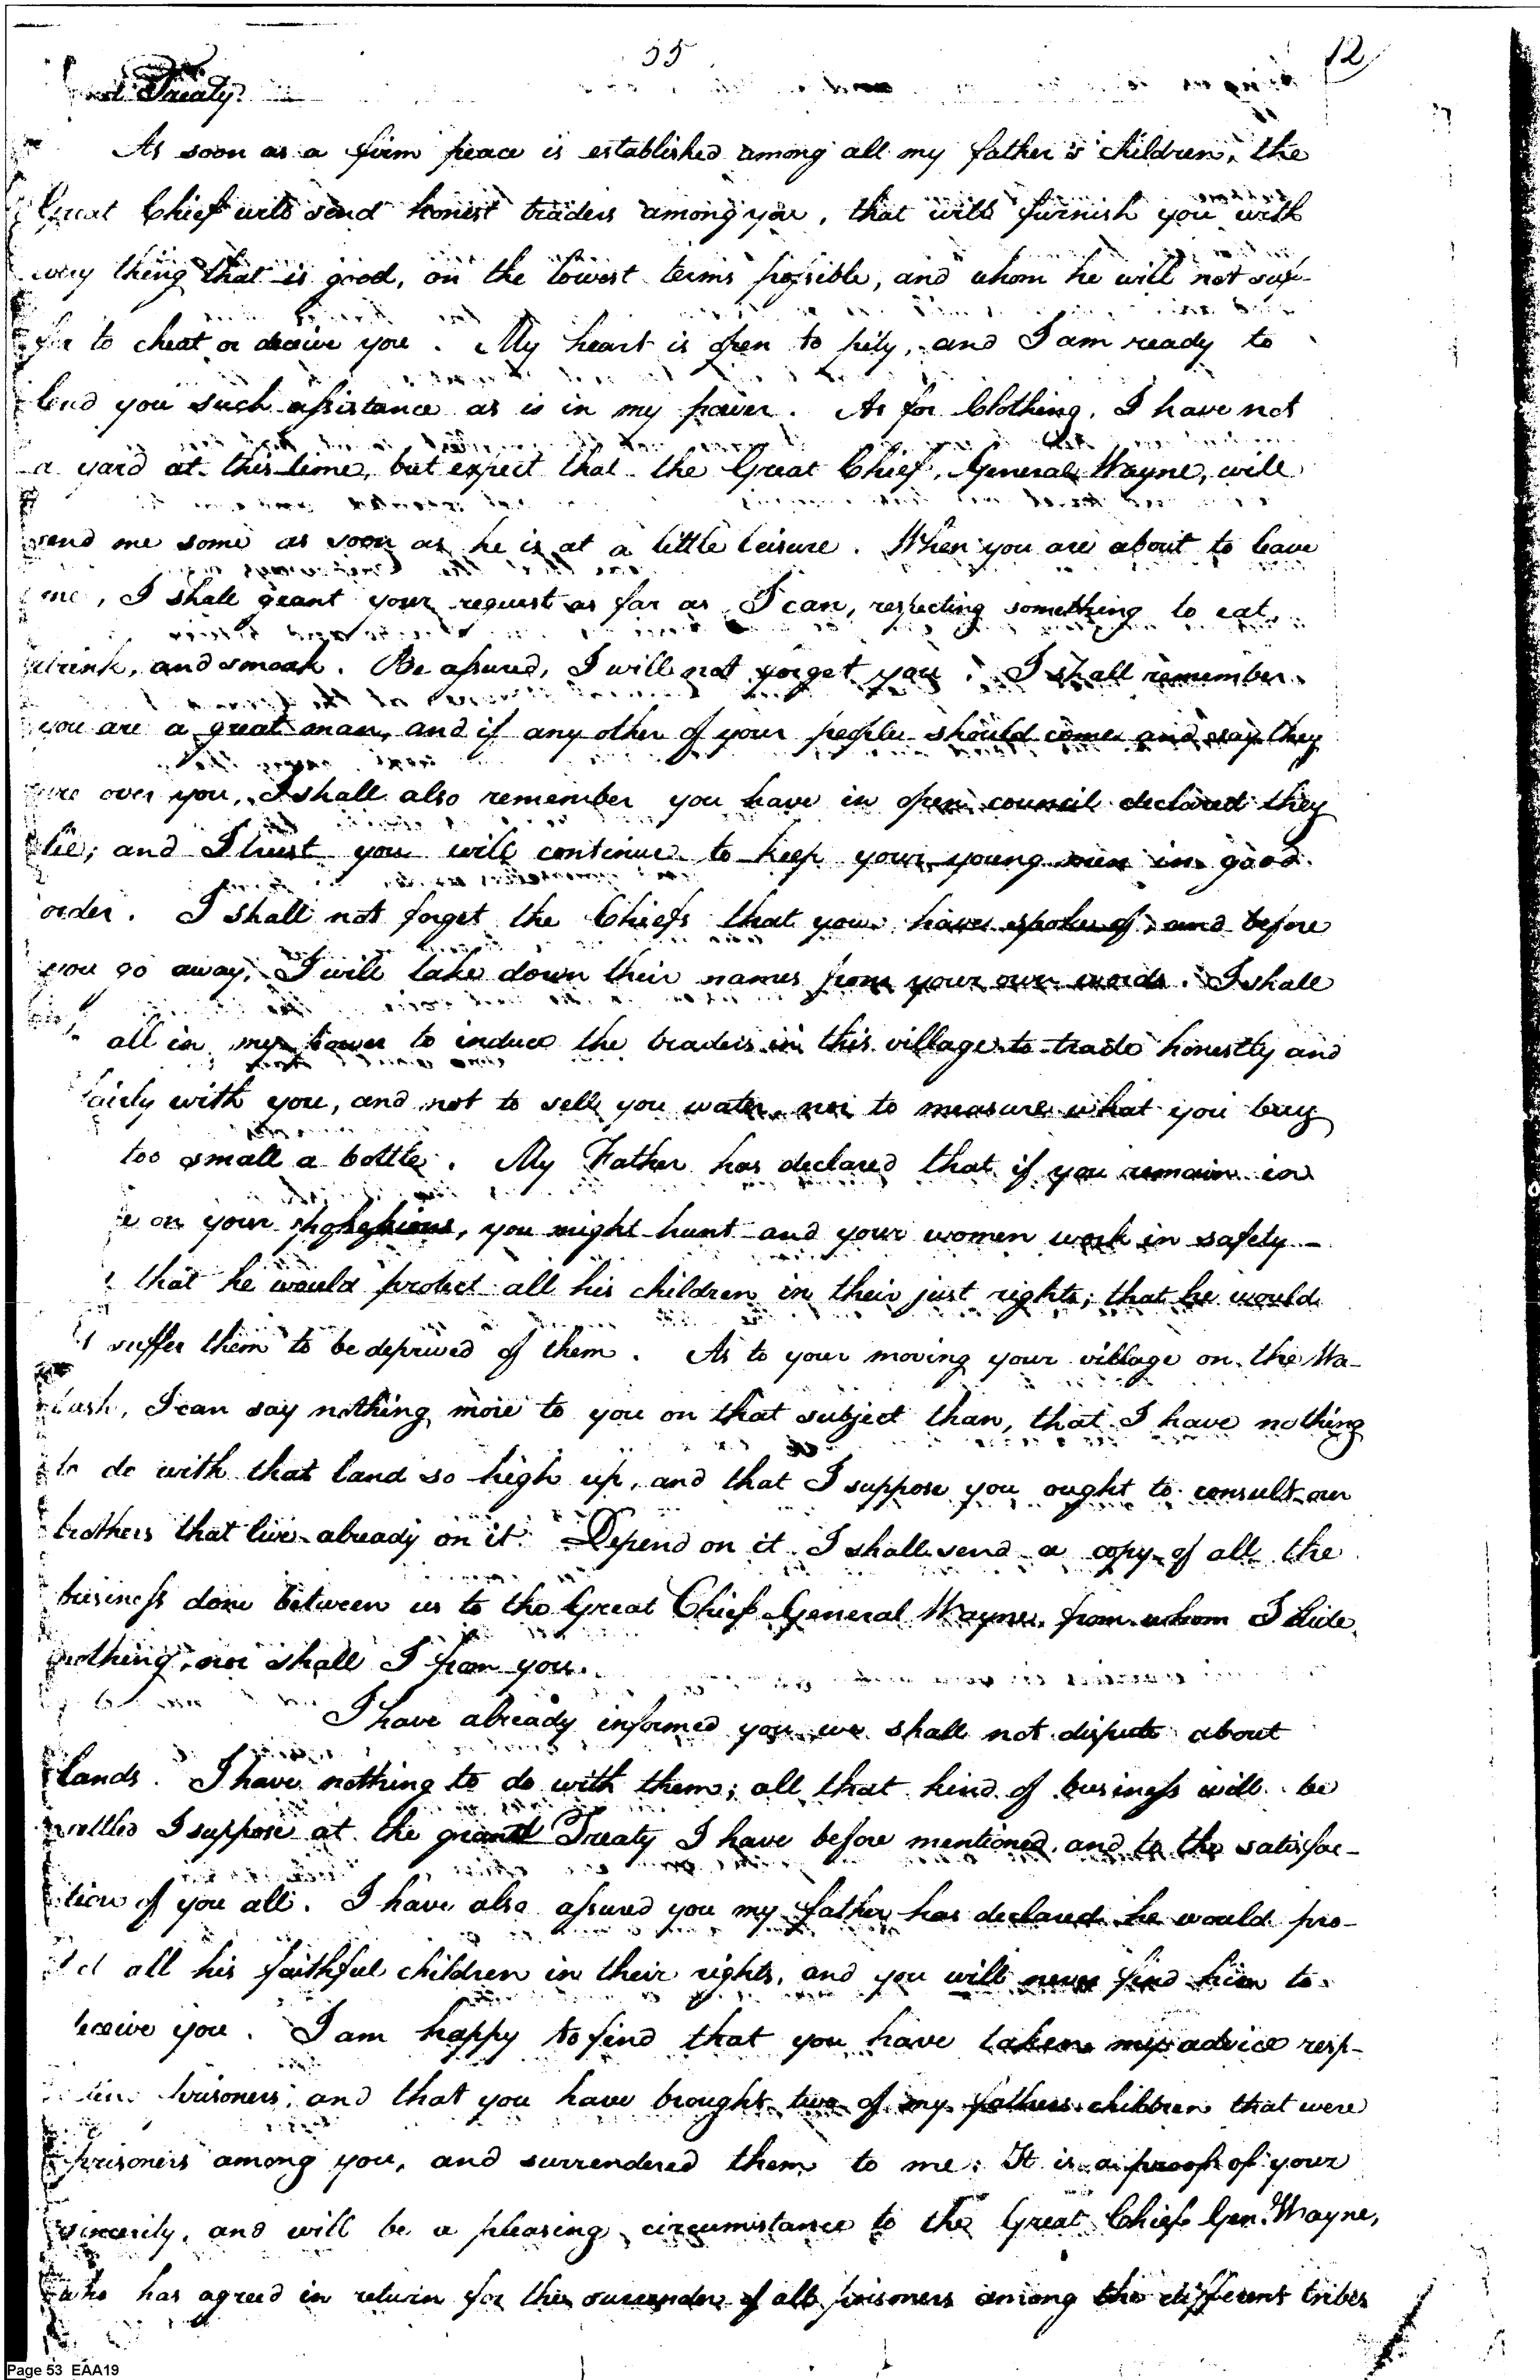 55
12
Treaty.
As soon as a firm peace is established among all my father's children, the
Great Chief will send honest traders among you, that will furnish you with
every thing that is good, on the lowest terms possible, and whom he will not suf-
fer to cheat or deceive you. My heart is open to pity, and I am ready to
lend you such assistance as is in my power. As for Clothing, I have not
a yard at this time, but expect that the Great Chief, General Wayne, will
send me some as soon as he is at a little leisure. When you are about to leave
me, I shall grant your request as far as I can, respecting something to eat,
drink, and smoak. Be assured, I will not forget you. I shall remember
you are a great man, and if any other of your people should come and say they
are over you, I shall also remember you have in open council declared they
lie; and I trust you will continue to keep your young men in good
order. I shall not forget the Chiefs that you have spoke of, and before
you go away, I will take down their names from your own words. I shall
all in my power to induce the traders in this village to trade honestly and
fairly with you, and not to sell you water nor to measure what you buy
too small a bottle. My Father has declared that if you remain in
on your possessions, you might hunt and your women work in safety—
that he would protect all his children in their just rights; that he would
suffer them to be deprived of them. As to your moving your village on the Wa-
bash, I can say nothing more to you on that subject than, that I have nothing
to do with that land so high up, and that I suppose you ought to consult our
brothers that live already on it. Depend on it I shall send a copy of all the
business done between us to the Great Chief General Wayne, from whom I hide
nothing, nor shall I from you.
I have already informed you we shall not dispute about
lands. I have nothing to do with them; all that kind of business will be
settled I suppose at the grand Treaty I have before mentioned, and to the satisfac-
tion of you all. I have also assured you my father has declared he would pro-
tect all his faithful children in their rights, and you will never find him to
deceive you. I am happy to find that you have taken my advice resp-
prisoners, and that you have brought two of my fathers children that were
prisoners among you, and surrendered them to me. It is a proof of your
sincerity, and will be a pleasing circumstance to the Great Chief Gen. Wayne,
who has agreed in return for the surrender of all prisoners among the different tribes
Page 53 EAA19